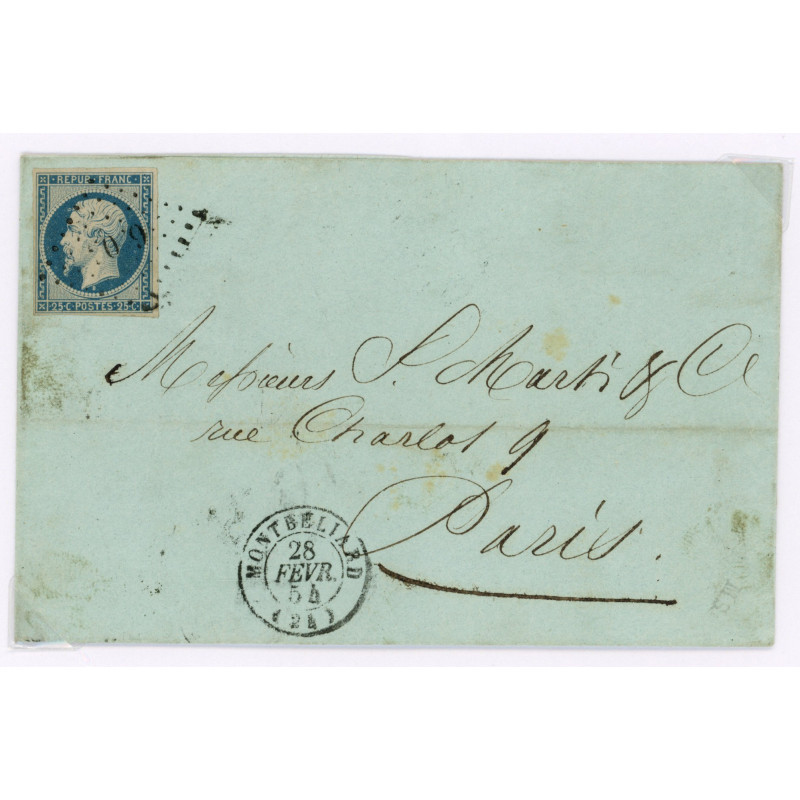 REPUB. FRANC.
25 C. POSTES 25 C.
Messieurs S. Marti & Cie
rue Charlot 9
Paris.
MONTBELIARD
28
FEVR.
54
(24)